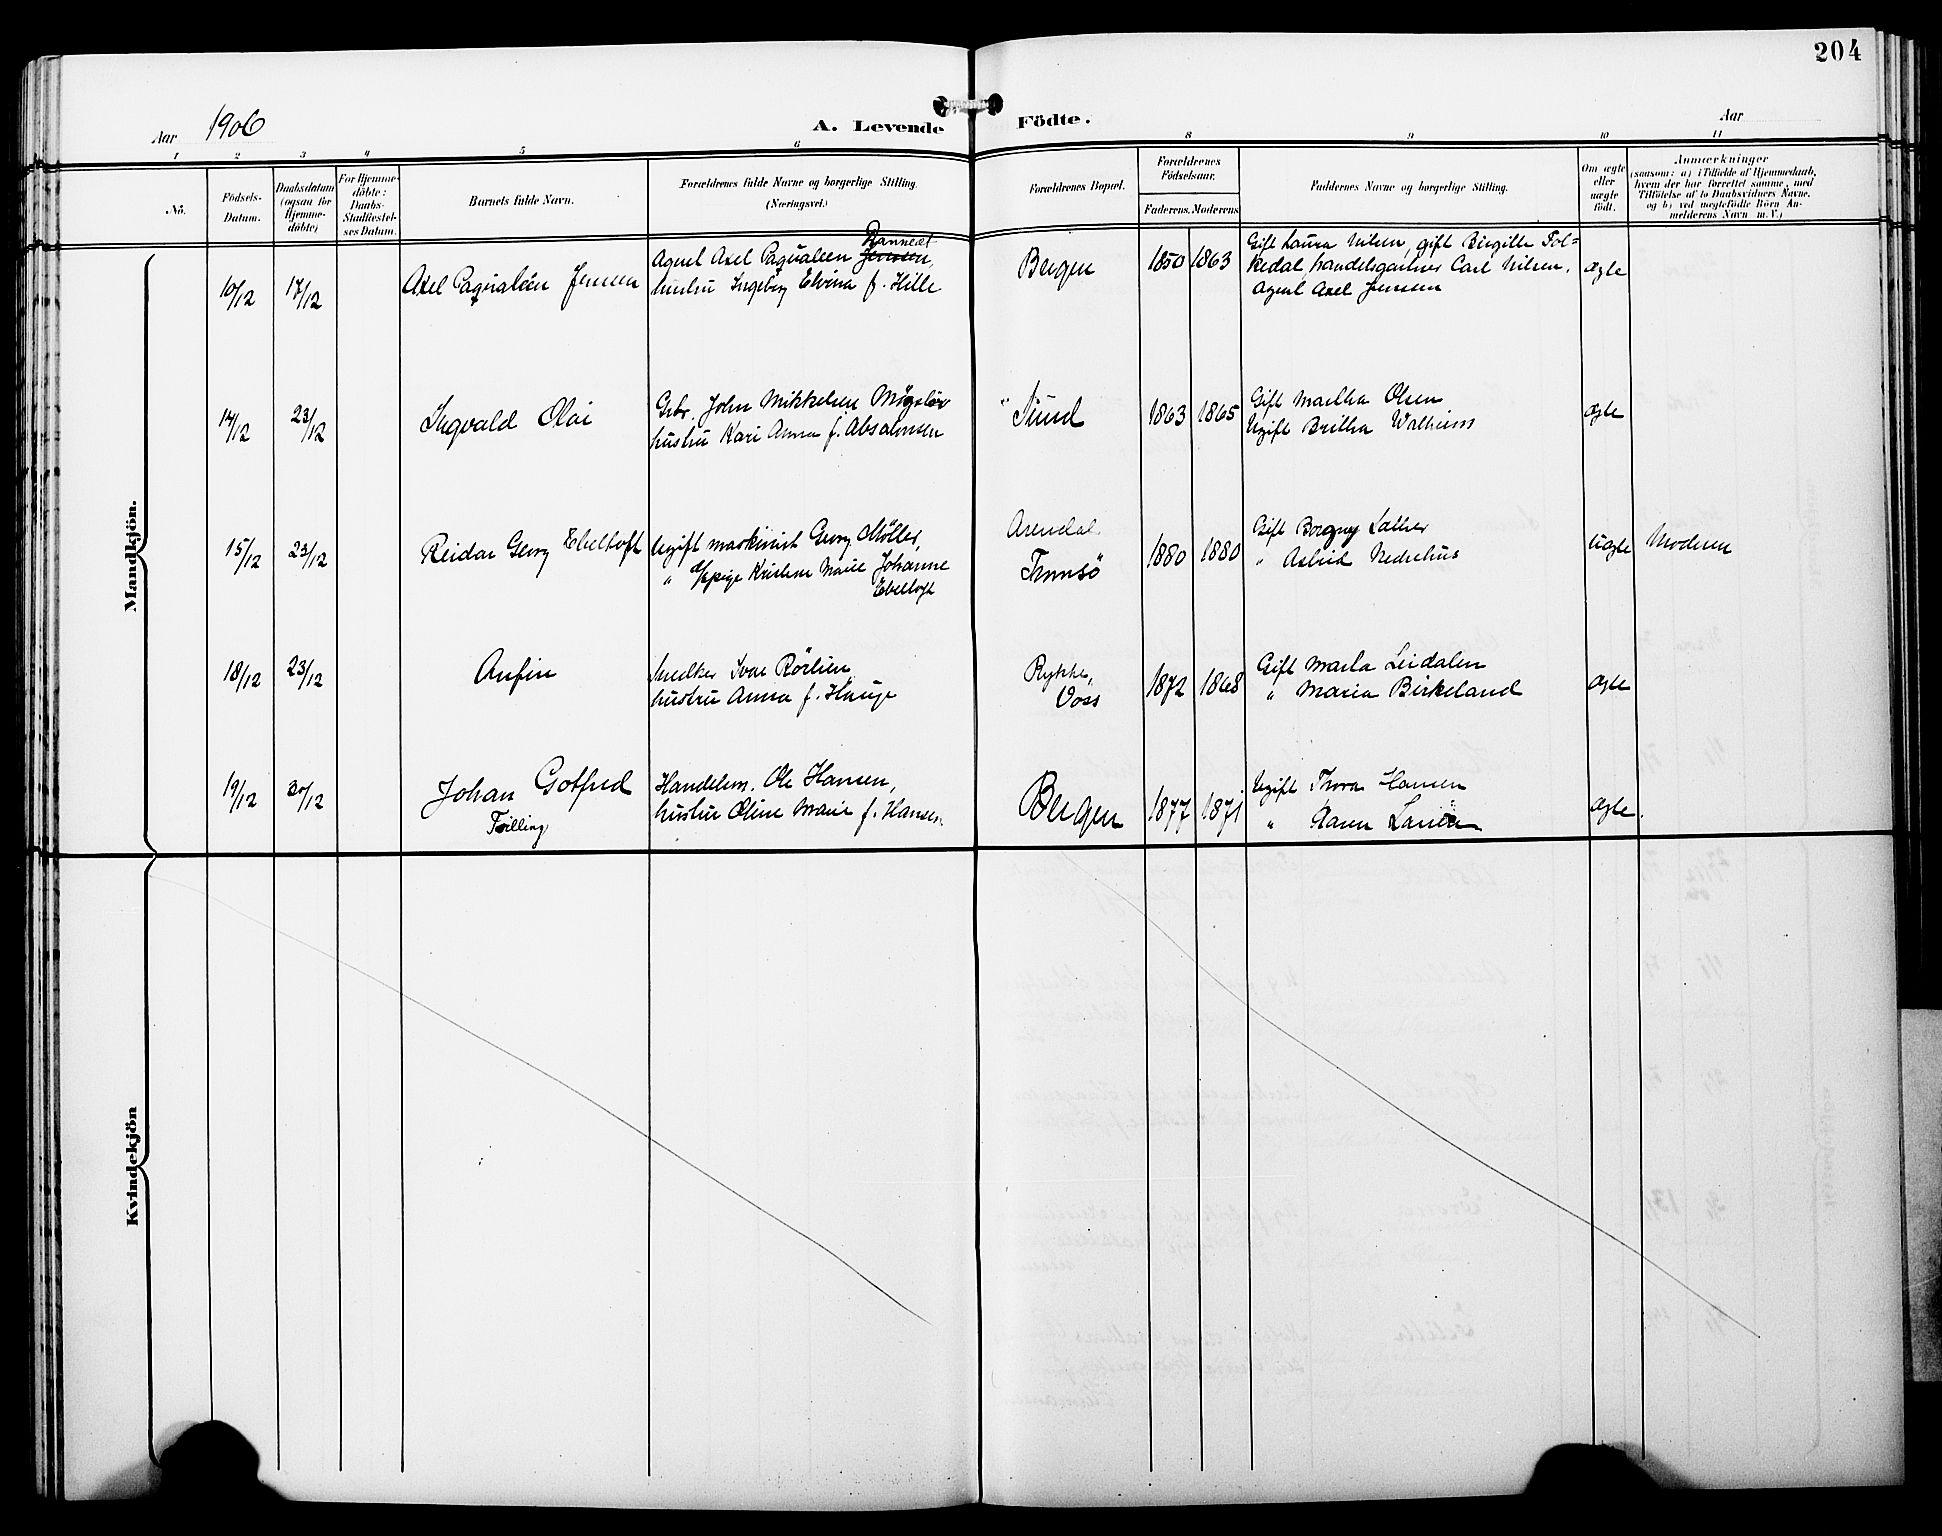 204
Aar 1906
A. Levende Födte.
Aar
1 2 3 4 5 6 8 9 10 11
No.
Födsels-
Datum.
Daabsdatum
(ogsaa for
Hjemme-
döbte)
For Hjemme-
döbte:
Daabs-
Stadfæstel-
ses Datum.
Barnets fulde Navn.
Forældrenes fulde Navne og borgerlige Stilling.
(Næringsvei.)
Forældrenes Bopæl.
Forældrenes
Födselsaar.
Faderens. Moderens
Faddernes Navne og borgerlige Stilling.
Om ægte
eller
uægte
födt.
Anmærkninger
(saasom: a) i Tilfælde af Hjemmedaab,
hvem der har forrettet samme, med
Tilföielse af to Daabsvidners Navne.
og b) ved uægtefödte Börn An-
melderens Navn m. V.)
Mandkjön.
10/12 17/12 Axel Paqualeen Jensen
Dannedt
Agent Axel Paqualeen Jensen,
hustru Ingeborg Elvina f. Hille
Bergen 1850 1863
Gift Laura Nilsen, gift Birgitte Fol=
kedal, handelsgartner Carl Nilsen,
Agent Axel Jensen
ægte
14/12 23/12 Ingvald Olai
Gbr. John Mikkelsen Mögsler
hustru Kari Anna f. Absalonsen
Sund 1863 1865
Gift Martha Olsen
Ugift Britha Walheim
ægte
15/12 23/12 Reidar Georg Ebeltoft
Ugift maskinist Georg Møller,
" pige Kristine Marie Johanne
Ebeltoft
Arendal
Tromsö
1880 1880
Gift Borgny Lother
" Astrid Nedrehus
uægte Moderen
18/12 23/12 Anfin
Snedker Ivar Rörlien,
hustru Anna f. Hauge
Rykke,
Voss
1872 1868
Gift Marta Leidalen
" Maria Birkeland
ægte
19/12 30/12 Johan Gotfred
Tvilling
Handelsm. Ole Hansen,
hustru Oline Marie f. Hansen
Bergen 1877 1871
Ugift Thora Hansen
" Karen Larsen
ægte.
Kvindekjön